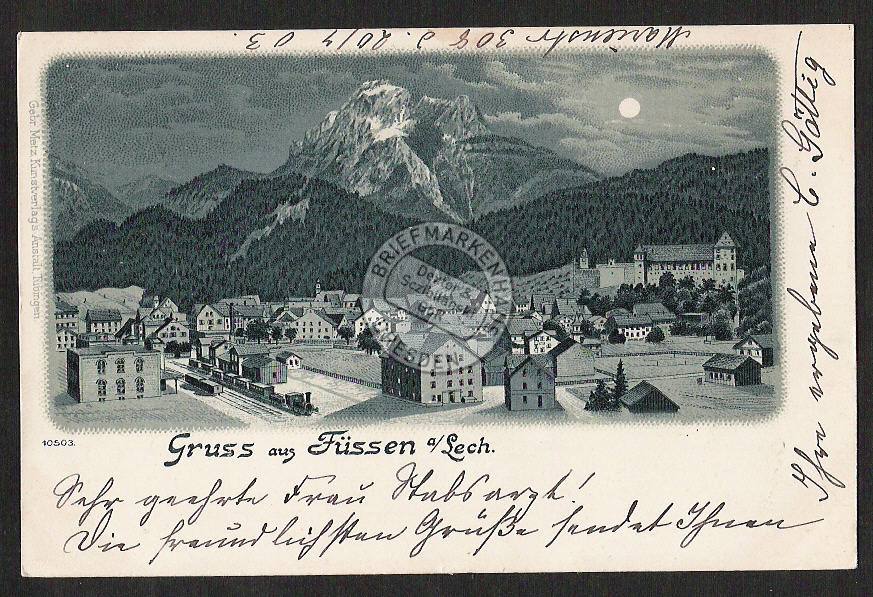 Marienstr 308 d. 20/7 03
Gebr. Metz, Kunstverlags-Anstalt, Tübingen
BRIEFMARKENHAUS
DRESDEN
10503.
Gruss aus Füssen a/Lech.
Sehr geehrte Frau Stabsarzt!
Die freundlichsten Grüße sendet Ihnen
Ihre ergebene C. Göttig